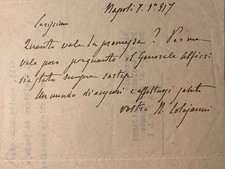 Napoli 7. 1º 917
Carissimo
Quanto vale la promessa? Per me
vale poco perquanto il Generale Alfieri
sia stato sempre cortese
Un mondo di auguri e affettuosi saluti
vostro N. Colajanni